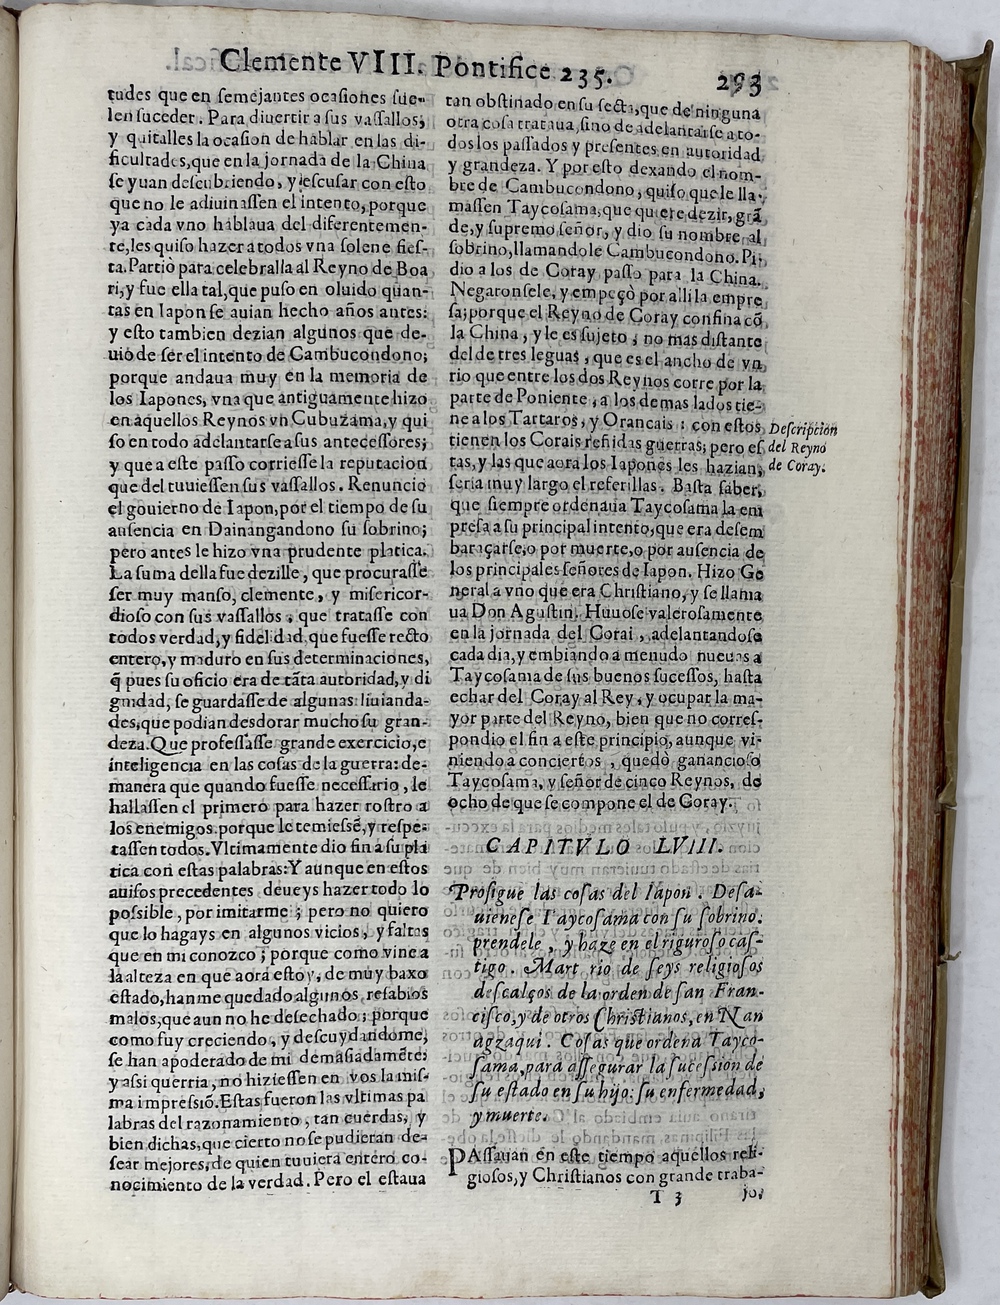 Clemente VIII. Pontifice 235. 293
tudes que en semejantes ocasiones sue-
len suceder. Para diuertir a sus vassallos,
y quitalles la ocasion de hablar en las di-
ficultades, que en la jornada de la China
se yuan descubriendo, y escusar con esto
que no le adiuinassen el intento, porque
ya cada vno hablaua del diferentemen-
te, les quiso hazer a todos vna solene fies-
ta. Partiò para celebralla al Reyno de Boa
ri, y fue ella tal, que puso en oluido quan-
tas en Iapon se auian hecho años antes:
y esto tambien dezian algunos que de-
uiò de ser el intento de Cambucondono;
porque andaua muy en la memoria de
los Iapones, vna que antiguamente hizo
en aquellos Reynos vn Cubuzama, y qui
so en todo adelantarse a sus antecessores;
y que a este passo corriesse la reputacion
que del tuuiessen sus vassallos. Renunciò
el gouierno de Iapon, por el tiempo de su
ausencia en Dainangandono su sobrino;
pero antes le hizo vna prudente platica.
La suma della fue dezille, que procurasse
ser muy manso, clemente, y misericor-
dioso con sus vassallos, que tratasse con
todos verdad, y fidelidad, que fuesse recto
entero, y maduro en sus determinaciones,
q̃ pues su oficio era de tãta autoridad, y di
gnidad, se guardasse de algunas liuianda-
des, que podian desdorar mucho su gran-
deza. Que professasse grande exercicio, e
inteligencia en las cosas de la guerra: de-
manera que quando fuesse necessario, le
hallassen el primero para hazer rostro a
los enemigos, porque le temiessẽ, y respe-
tassen todos. Vltimamente dio fin a su pla
tica con estas palabras: Y aunque en estos
auisos precedentes deueys hazer todo lo
possible, por imitarme; pero no quiero
que lo hagays en algunos vicios, y faltas
que en mi conozco; porque como vine a
la alteza en que aora estoy, de muy baxo
estado, hanme quedado algunos resabios
malos, que aun no he desechado; porque
como fuy creciendo, y descuydandome,
se han apoderado de mi demasiadamẽte:
y assi querria, no hiziessen en vos la mis-
ma impressiõ. Estas fueron las vltimas pa
labras del razonamiento, tan cuerdas, y
bien dichas, que cierto no se pudieran de-
sear mejores, de quien tuuiera entero co-
nocimiento de la verdad. Pero el estaua
tan obstinado en su secta, que de ninguna
otra cosa trataua, sino de adelantarse a to-
dos los passados y presentes en autoridad,
y grandeza. Y por esto dexando el nom-
bre de Cambucondono, quiso que le lla-
massen Taycosama, que quiere dezir, grã
de, y supremo señor, y dio su nombre al
sobrino, llamandole Cambucondono. Pi-
dio a los de Coray passo para la China.
Negaronsele, y empeçò por alli la empre
sa; porque el Reyno de Coray confina cõ
la China, y le es sujeto, no mas distante
del de tres leguas, que es el ancho de vn
rio que entre los dos Reynos corre por la
parte de Poniente, a los demas lados tie-
ne a los Tartaros, y Orancais: con estos
tienen los Corais reñidas guerras; pero es
tas, y las que aora los Iapones les hazian,
seria muy largo el referillas. Basta saber,
que siempre ordenaua Taycosama la em
presa a su principal intento, que era desem
baraçarse, o por muerte, o por ausencia de
los principales señores de Iapon. Hizo Ge
neral a vno que era Christiano, y se llama
ua Don Agustin. Huuose valerosamente
en la jornada del Corai, adelantandose
cada dia, y embiando a menudo nueuas a
Taycosama de sus buenos sucessos, hasta
echar del Coray al Rey, y ocupar la ma-
yor parte del Reyno, bien que no corres-
pondio el fin a este principio, aunque vi-
niendo a conciertos, quedò ganancioso
Taycosama, y señor de cinco Reynos, de
ocho de que se compone el de Coray.
Descripcion
del Reyno
de Coray.
CAPITVLO LVIII.
Prosigue las cosas del Iapon. Desa-
uienese Taycosama con su sobrino.
prendele, y haze en el riguroso cas-
tigo. Mart rio de seys religiosos
descalços de la orden de san Fran-
cisco, y de otros Christianos, en Nan
agzaqui. Cosas que ordena Tayco-
sama, para assegurar la sucession de
su estado en su hijo: su enfermedad,
y muerte.
PAssauan en este tiempo aquellos reli-
giosos, y Christianos con grande traba-
T 3 jo,